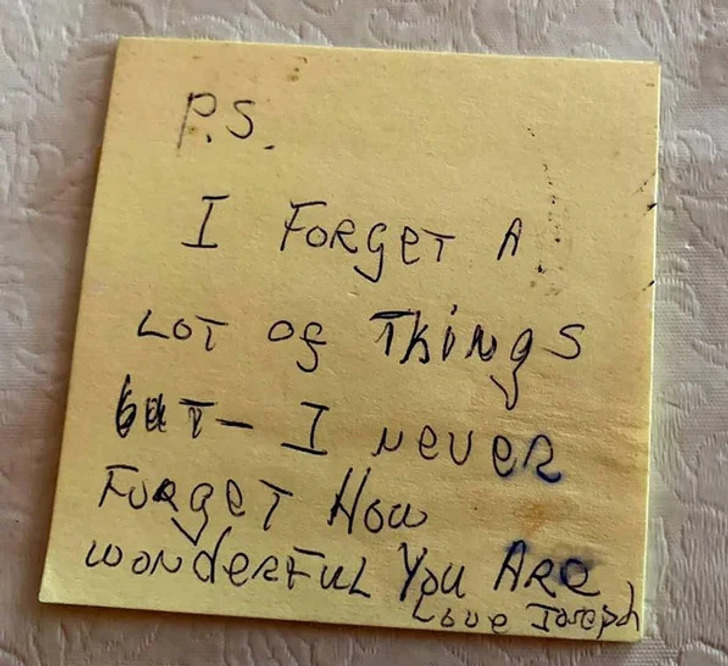 P.S.
I FORGET A
LOT Of THiNgS
buT- I NeVeR
FORgeT How
WONdeRFuL You ARe
Love Joseph